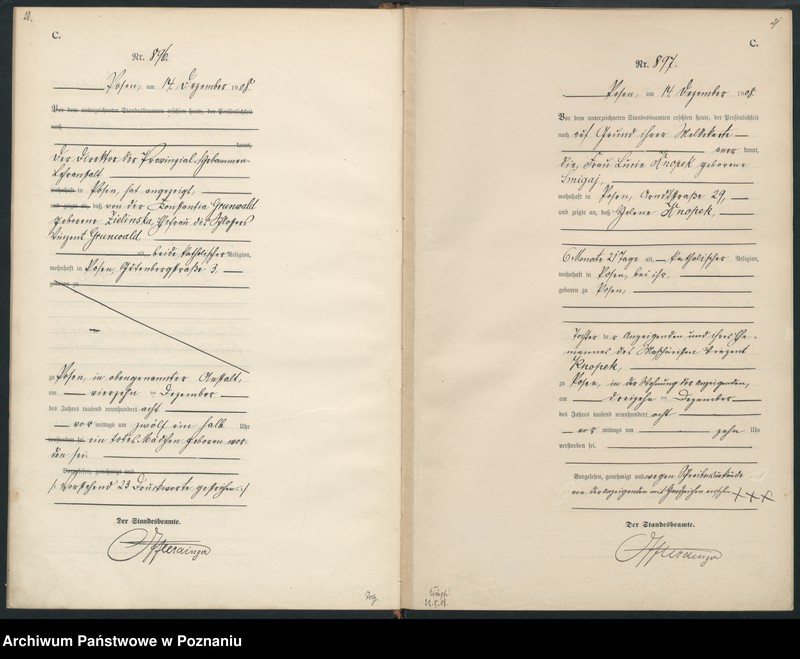 20.
C.
Nr. 896.
Posen, am 14. Dezember 1908.
Vor dem unterzeichneten Standesbeamten erschien heute, der Persönlichkeit
nach
kannt,
Der Direktor der Provinzial-Hebammen-
Lehranstalt
wohnhaft in Posen, hat angezeigt,
und zeigte an, daß von der Konstantia Grunwald
geborene Zielinska, Ehefrau des Schlossers
Vinzent Grunwald,
alt, beide katholischer Religion,
wohnhaft in Posen, Gutenbergstraße 3,
geboren zu
zu Posen, in obengenannter Anstalt,
am vierzehn ten Dezember
des Jahres tausend neunhundert acht
vor mittags um zwölf ein halb Uhr
verstorben sei ein totes Mädchen geboren wor-
den sei.
Vorgelesen, genehmigt und
/: Vorstehend 23 Druckworte gestrichen :/
Der Standesbeamte.
21
C.
Nr. 897.
Posen, am 14. Dezember 1908.
Vor dem unterzeichneten Standesbeamten erschien heute, der Persönlichkeit
nach auf Grund ihrer Meldekarte
aner kannt,
die Frau Lucie Knopek geborene
Smigaj,
wohnhaft in Posen, Arndtstraße 29,
und zeigte an, daß Helene Knopek,
6 Monate 21 Tage alt, katholischer Religion,
wohnhaft in Posen, bei ihr,
geboren zu Posen,
Tochter der Anzeigenden und ihres Ehe-
mannes des Maschinisten Vinzent
Knopek,
zu Posen, in der Wohnung der Anzeigenden,
am dreizehn ten Dezember
des Jahres tausend neunhundert acht
vor mittags um zehn Uhr
verstorben sei.
Vorgelesen, genehmigt und wegen Schreibensunkunde
von der Anzeigenden mit Handzeichen versehen +++
Der Standesbeamte.
Archiwum Państwowe w Poznaniu